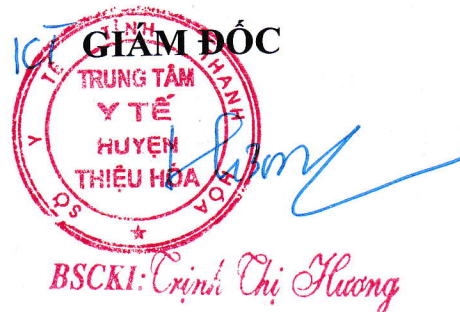 KT GIÁM ĐỐC
SỞ Y TẾ TỈNH THANH HÓA
TRUNG TÂM
Y TẾ
HUYỆN
THIỆU HÓA
Hương
BSCKI: Trịnh Thị Hương